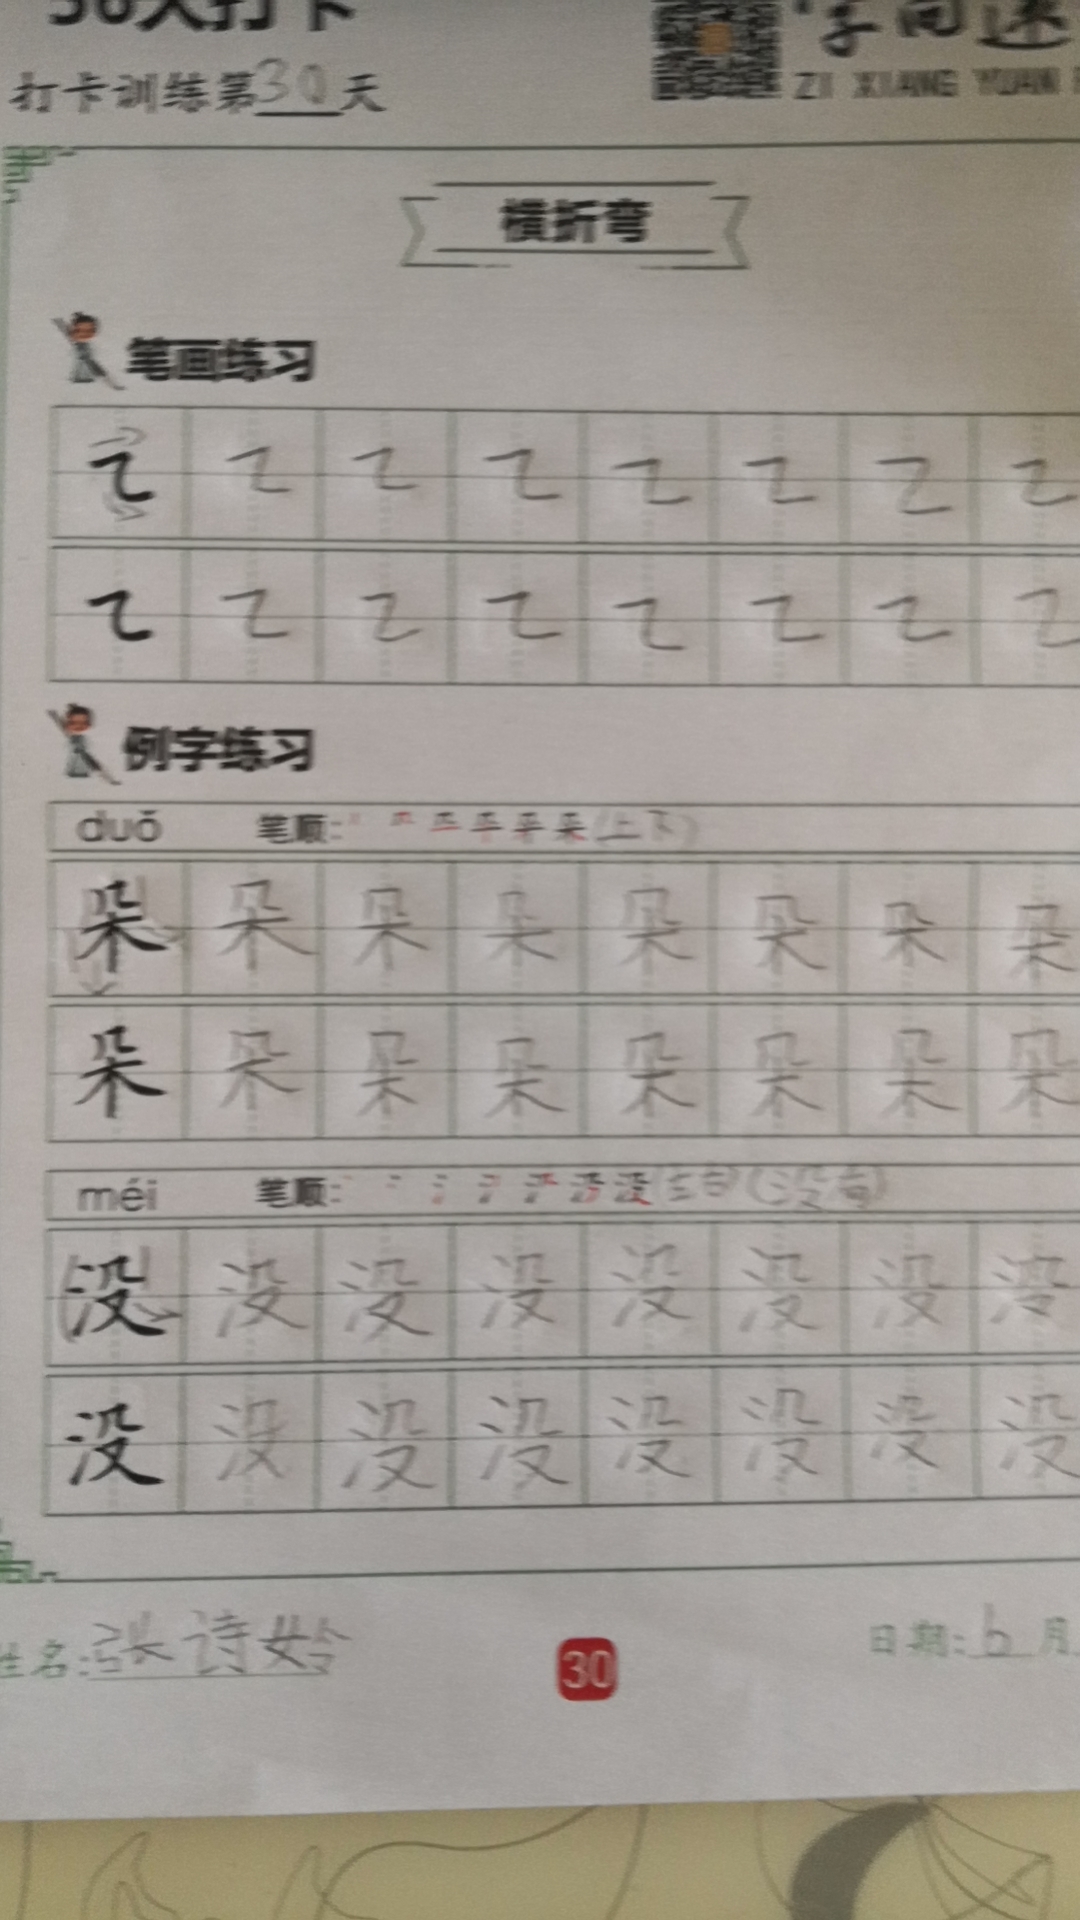 30天打卡
打卡训练第30天
ZI XIANG YUAN
横折弯
笔画练习
例字练习
duǒ 笔顺: (上下)
朵 朵 朵 朵 朵 朵 朵 朵
朵 朵 朵 朵 朵 朵 朵 朵
méi 笔顺: (左右)(没有)
没 没 没 没 没 没 没 没
没 没 没 没 没 没 没 没
姓名:张诗妗
30
日期:6月